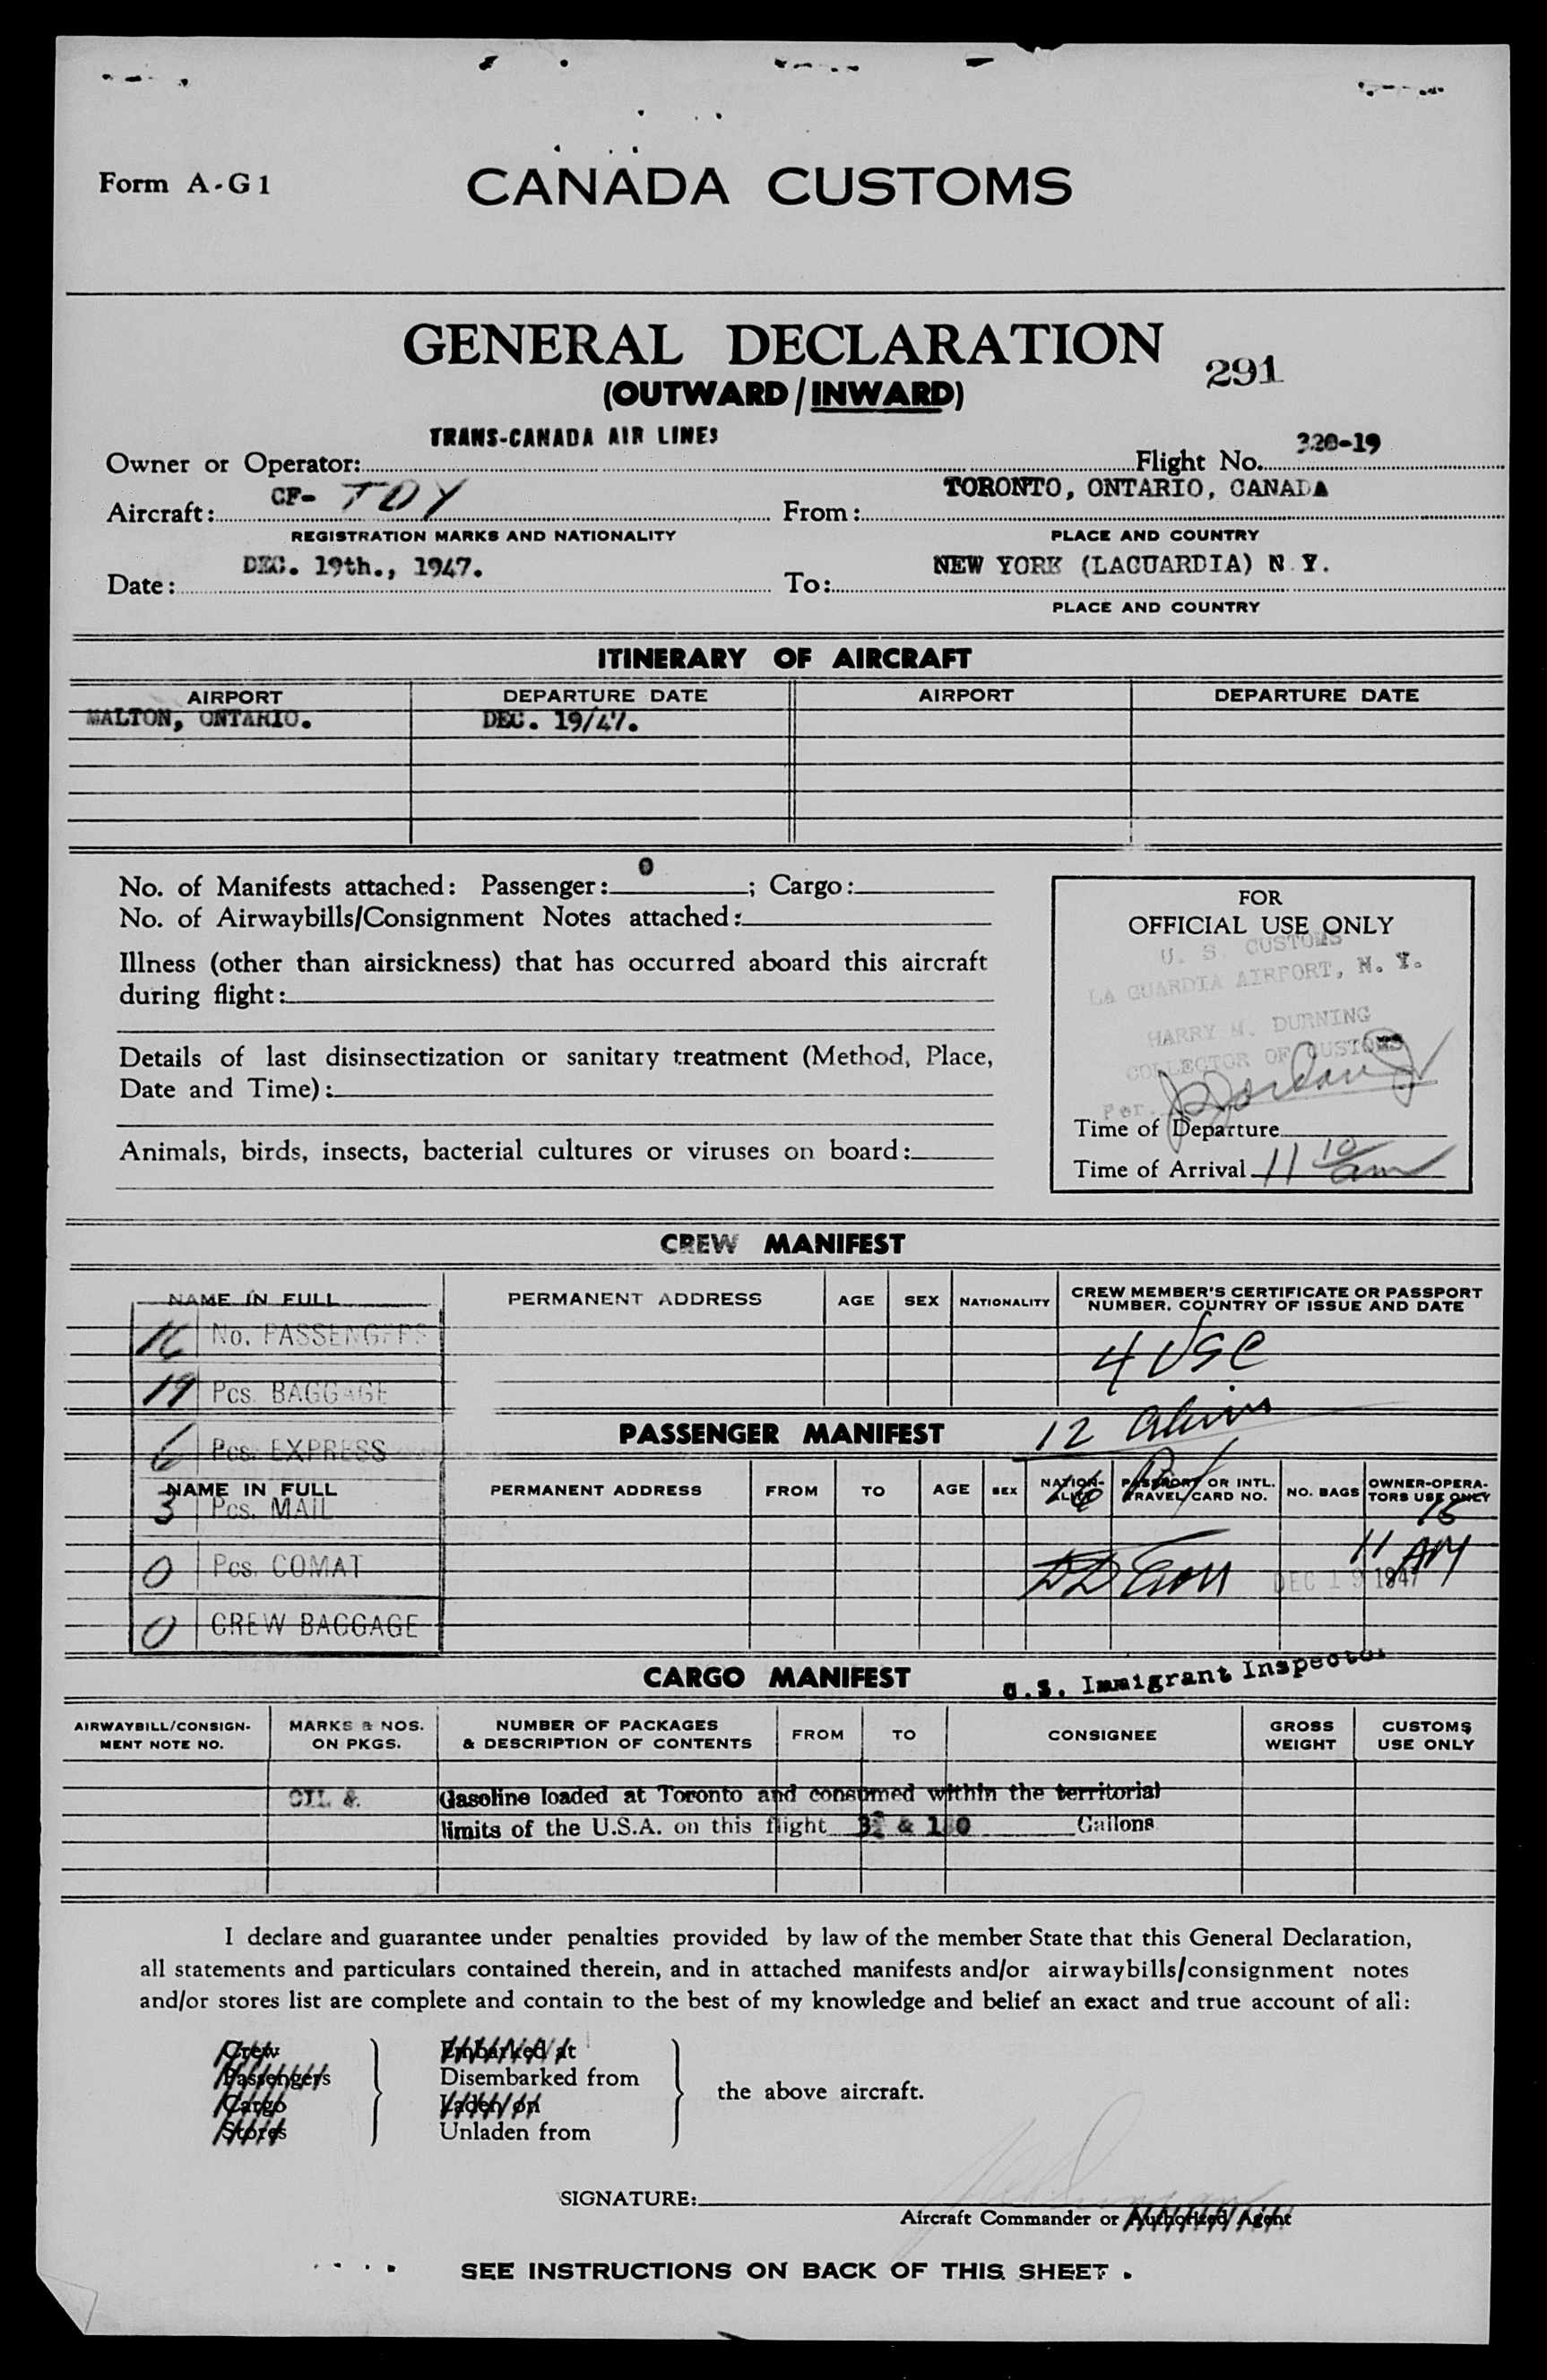 Form A-G1
CANADA CUSTOMS
GENERAL DECLARATION
291
(OUTWARD/INWARD)
TRANS-CANADA AIR LINES
320-19
Owner or Operator: Flight No.
CF- TDY
TORONTO, ONTARIO, CANADA
Aircraft: From:
REGISTRATION MARKS AND NATIONALITY PLACE AND COUNTRY
DEC. 19th., 1947. NEW YORK (LAGUARDIA) N.Y.
Date: To:
PLACE AND COUNTRY
ITINERARY OF AIRCRAFT
AIRPORT DEPARTURE DATE AIRPORT DEPARTURE DATE
MALTON, ONTARIO. DEC. 19/47.
No. of Manifests attached: Passenger: 0 ; Cargo:
No. of Airwaybills/Consignment Notes attached:
Illness (other than airsickness) that has occurred aboard this aircraft
during flight:
Details of last disinsectization or sanitary treatment (Method, Place,
Date and Time):
Animals, birds, insects, bacterial cultures or viruses on board:
FOR
OFFICIAL USE ONLY
U. S. CUSTOMS
LA GUARDIA AIRPORT, N. Y.
HARRY M. DURNING
COLLECTOR OF CUSTOMS
Per.
Time of Departure
Time of Arrival 11 10 am
CREW MANIFEST
NAME IN FULL PERMANENT ADDRESS AGE SEX NATIONALITY CREW MEMBER'S CERTIFICATE OR PASSPORT
NUMBER, COUNTRY OF ISSUE AND DATE
16 No. PASSENGERS
4 USC
19 Pcs. BAGGAGE
12 Aliens
PASSENGER MANIFEST
6 Pcs. EXPRESS
NAME IN FULL PERMANENT ADDRESS FROM TO AGE SEX NATION-
ALITY PASSPORT OR INTL.
TRAVEL/CARD NO. NO. BAGS OWNER-OPERA-
TORS USE ONLY
3 Pcs. MAIL
16
11 AM
0 Pcs. COMAT
DEC 19 1947
0 CREW BAGGAGE
CARGO MANIFEST
U.S. Immigrant Inspector
AIRWAYBILL/CONSIGN-
MENT NOTE NO. MARKS & NOS.
ON PKGS. NUMBER OF PACKAGES
& DESCRIPTION OF CONTENTS FROM TO CONSIGNEE GROSS
WEIGHT CUSTOMS
USE ONLY
OIL & Gasoline loaded at Toronto and consumed within the territorial
limits of the U.S.A. on this flight Gallons
I declare and guarantee under penalties provided by law of the member State that this General Declaration,
all statements and particulars contained therein, and in attached manifests and/or airwaybills/consignment notes
and/or stores list are complete and contain to the best of my knowledge and belief an exact and true account of all:
Crew Embarked at
Passengers Disembarked from
the above aircraft.
Cargo Laden on
Stores Unladen from
SIGNATURE:
Aircraft Commander or Authorized Agent
SEE INSTRUCTIONS ON BACK OF THIS SHEET.